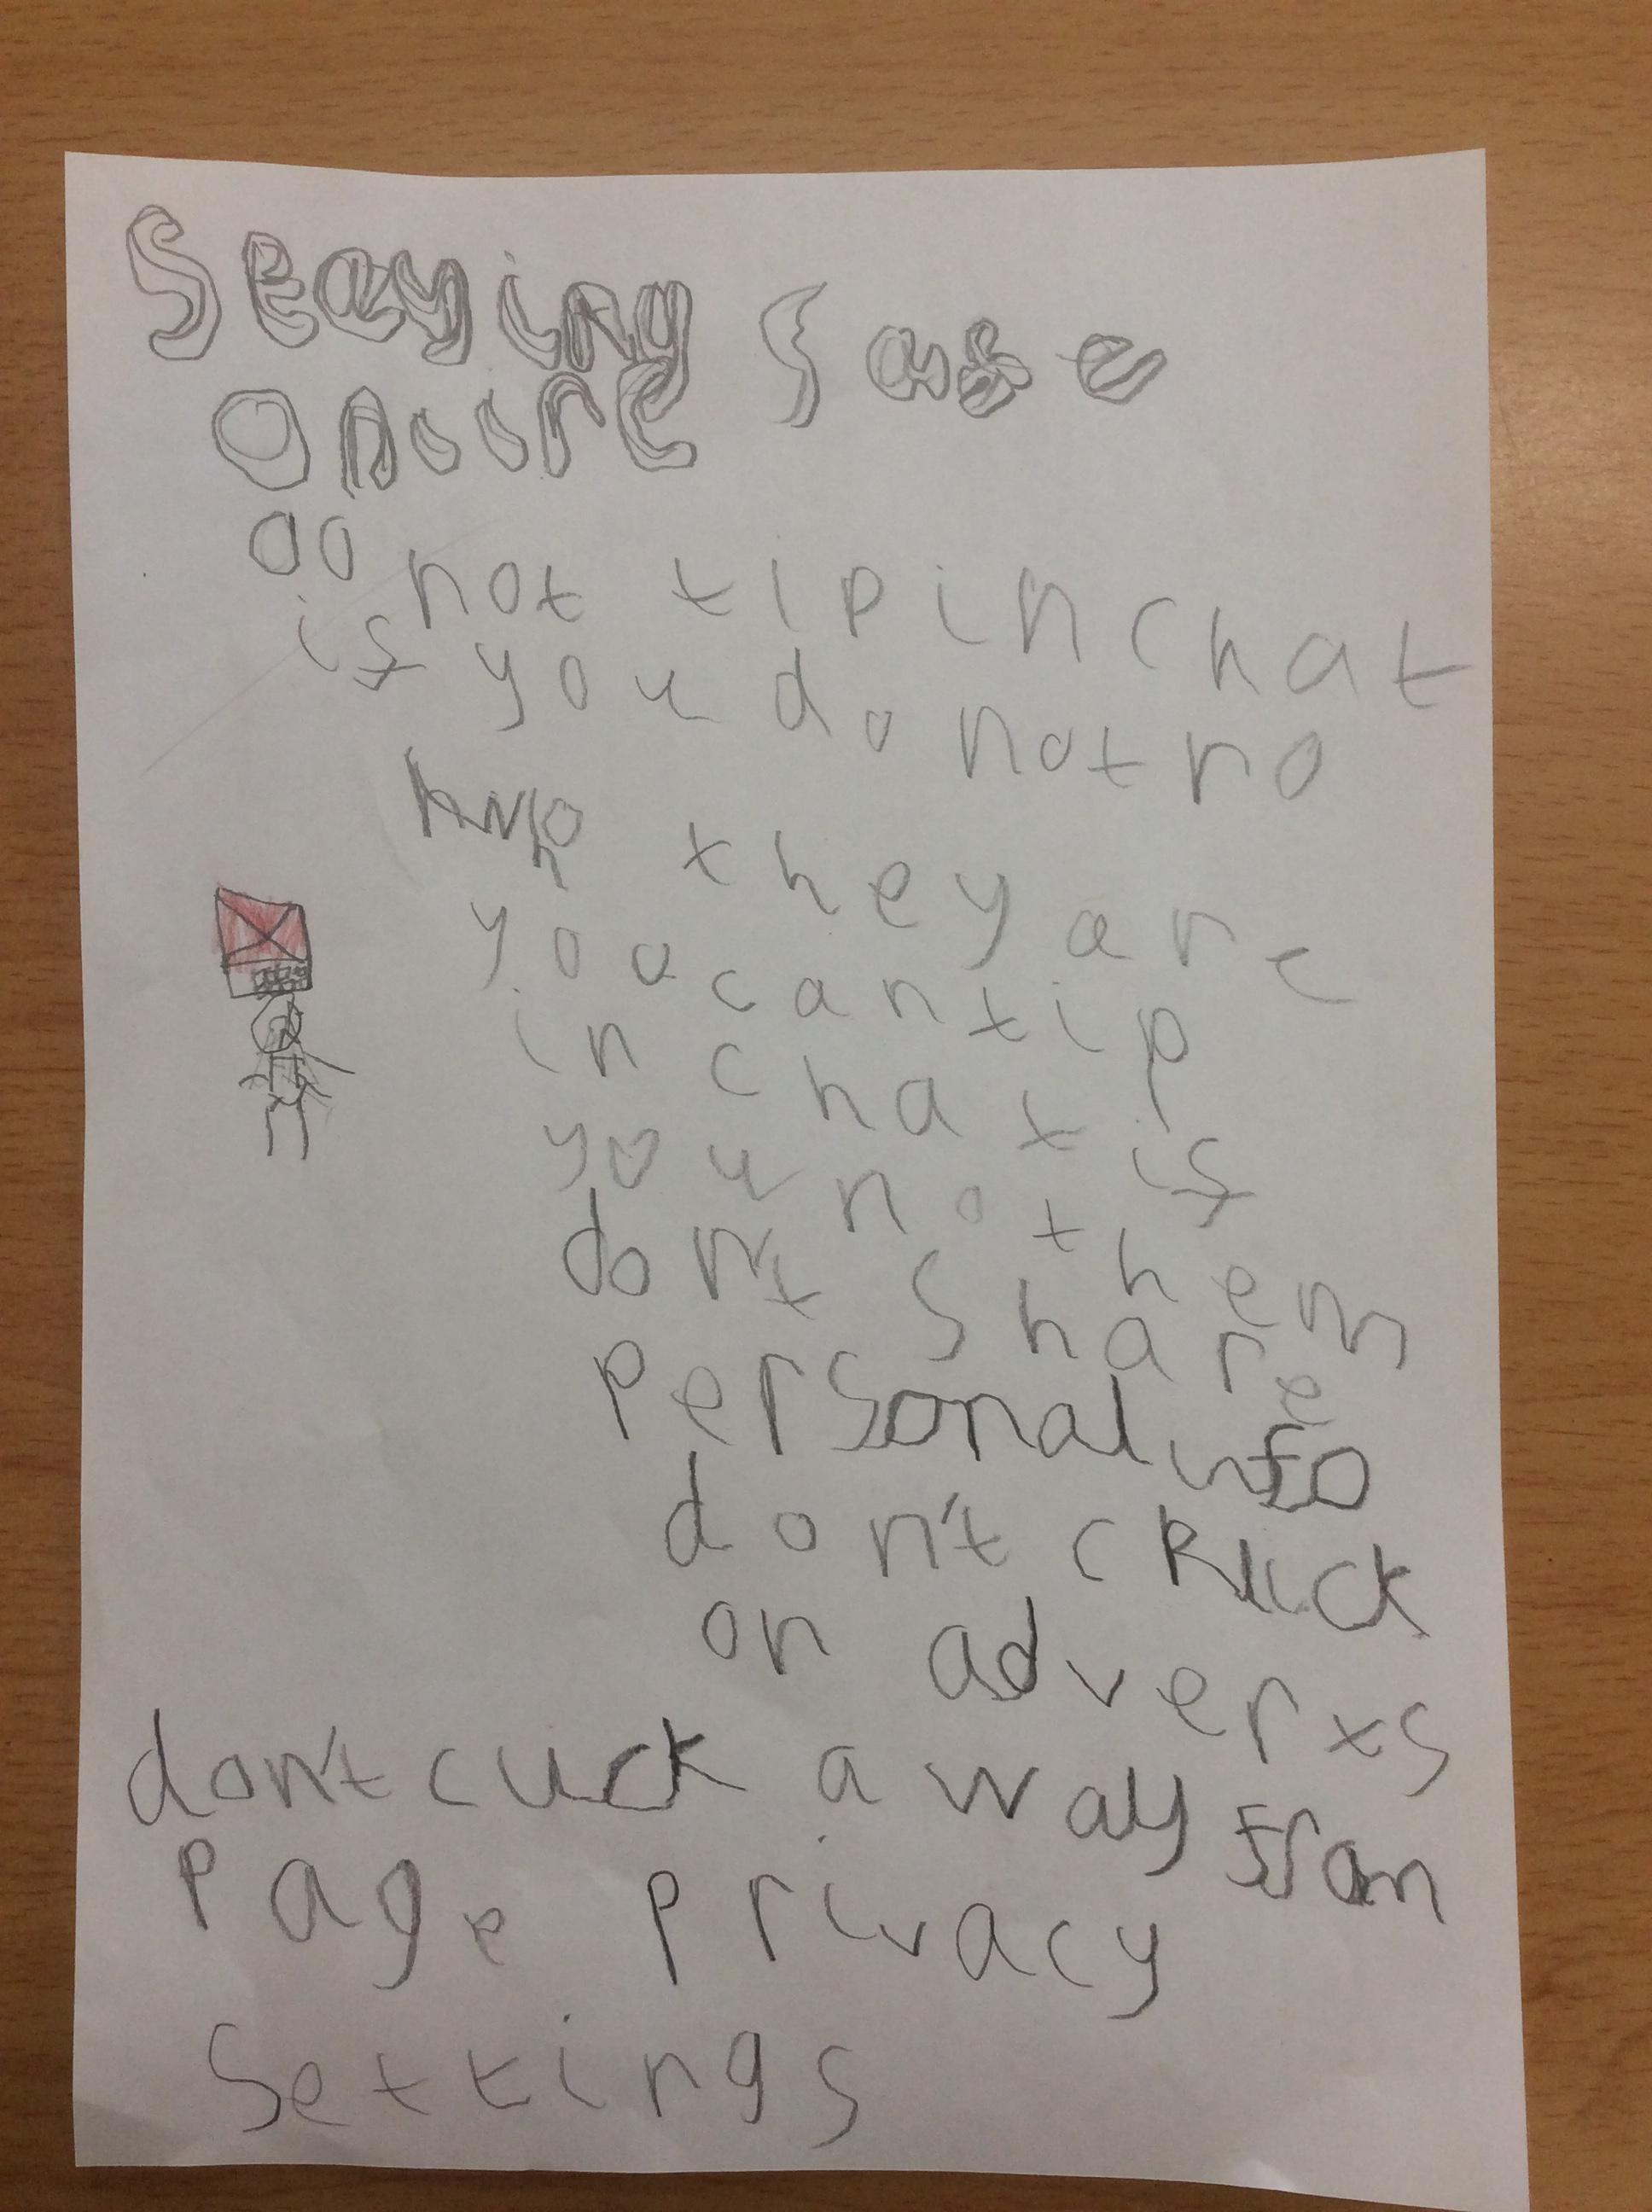 Staying Safe
Onlire
do not tip in chat
if you do not no
hwo they are
you can tip
in chat if
you not hem
don't share
personal info
don't click
on adverts
don't click away from
page privacy
settings